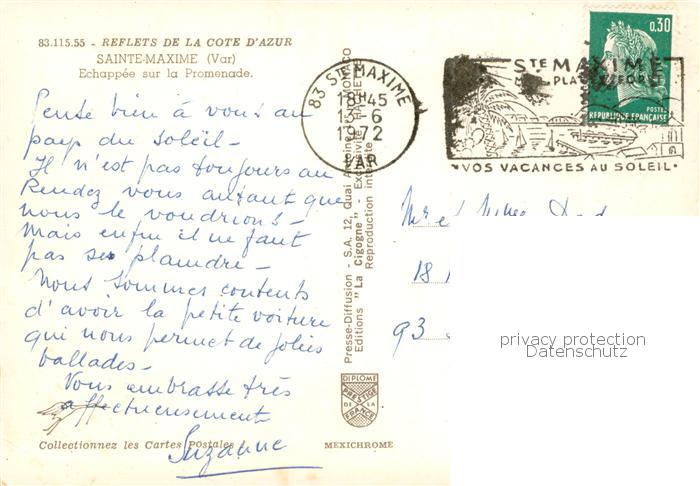 83.115.55 - REFLETS DE LA COTE D'AZUR
SAINTE-MAXIME (Var)
Echappée sur la Promenade.
Pense bien à vous au
pays du soleil -
Il n'est pas toujours au
Rendez vous autant que
nous le voudrions -
Mais enfin il ne faut
pas se plaindre -
Nous sommes contents
d'avoir la petite voiture
qui nous permet de jolies
ballades -
Vous embrasse très
affectueusement
Suzanne
Collectionnez les Cartes Postales !
83 STE MAXIME
18H45
13-6
1972
VAR
STE MAXIME
VOS VACANCES AU SOLEIL
0,30
POSTES
REPUBLIQUE FRANÇAISE
Presse-Diffusion - S.A. 12, Quai
Editions "La Cigogne" - Exclusivité
Reproduction interdite
DIPLOME
PRESTIGE
DE LA
FRANCE
MEXICHROME
Mr et Mme
18
93
privacy protection
Datenschutz